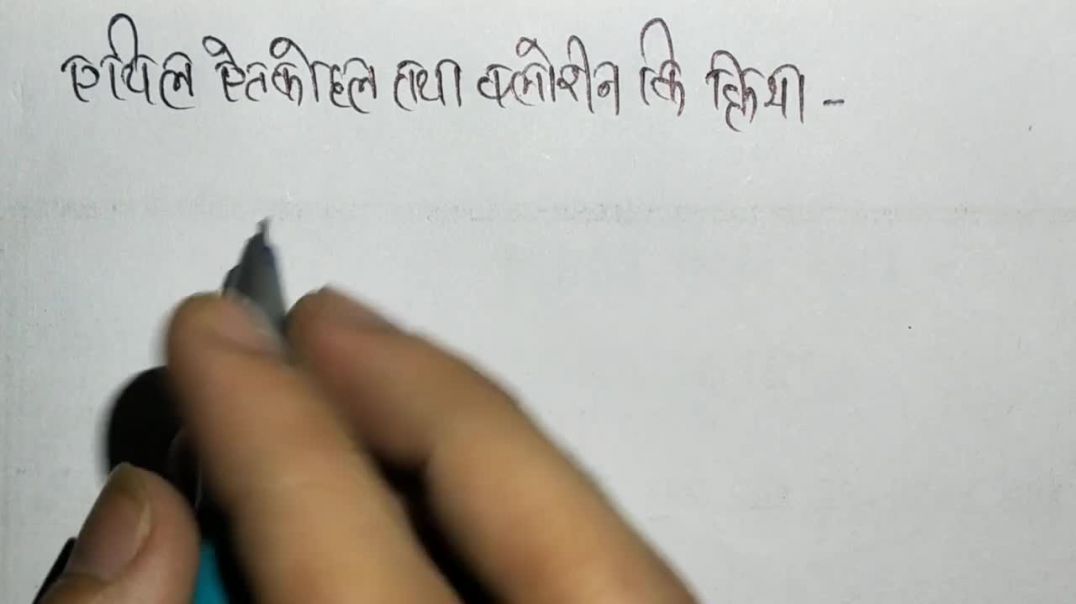 एथिल ऐल्कोहल तथा क्लोरीन कि क्रिया -